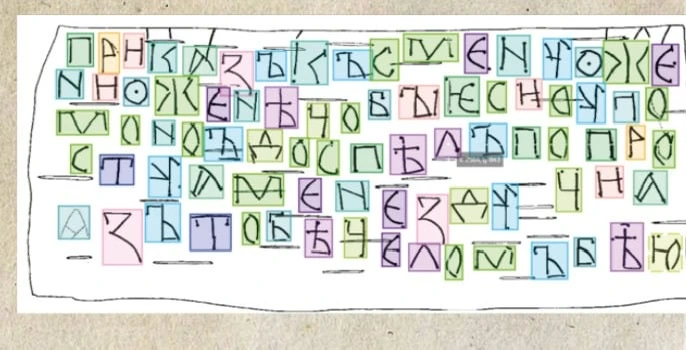 ПРНКАЗЪКЪСМЕNУОЖЕ
NНОЖЕNѢЧОБЫЕСНЕУПО
МОNОЪДОСПѢЛЪПОПРО
СТУАМЕNЕЗДУЧНА
АЗЪТОБѢЧЕЛОМЪБѢЮ